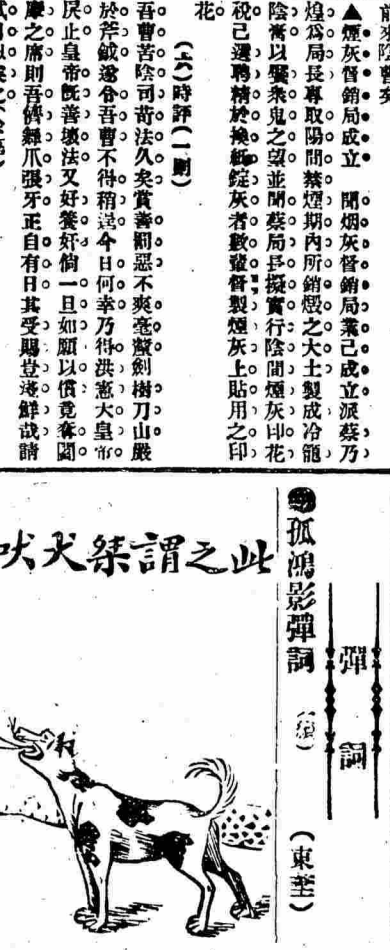 ▲煙灰督銷局成立　聞烟灰督銷局業已成立派蔡乃
煌爲局長專取陽間禁煙期內所銷燬之大土製成冷籠
陰膏以饜衆鬼之望並聞蔡局長擬實行陰間煙灰印花
稅已選聘精於換紙錠灰者數輩督製煙灰上貼用之印
花
時評(一則)
吾曹苦陰司苛法久矣賞善罰惡不爽毫釐劍樹刀山嚴
於斧鉞遂令吾曹不得稍逞今日何幸乃得洪憲大皇帝
戾止皇帝旣善壞法又好養奸倘一旦如願以償竟奪閻
摩之席則吾儕舞爪張牙正自有日其受賜豈淺鮮哉請
彈詞
孤鴻影彈詞 (續) (東埜)
此之謂桀犬吠